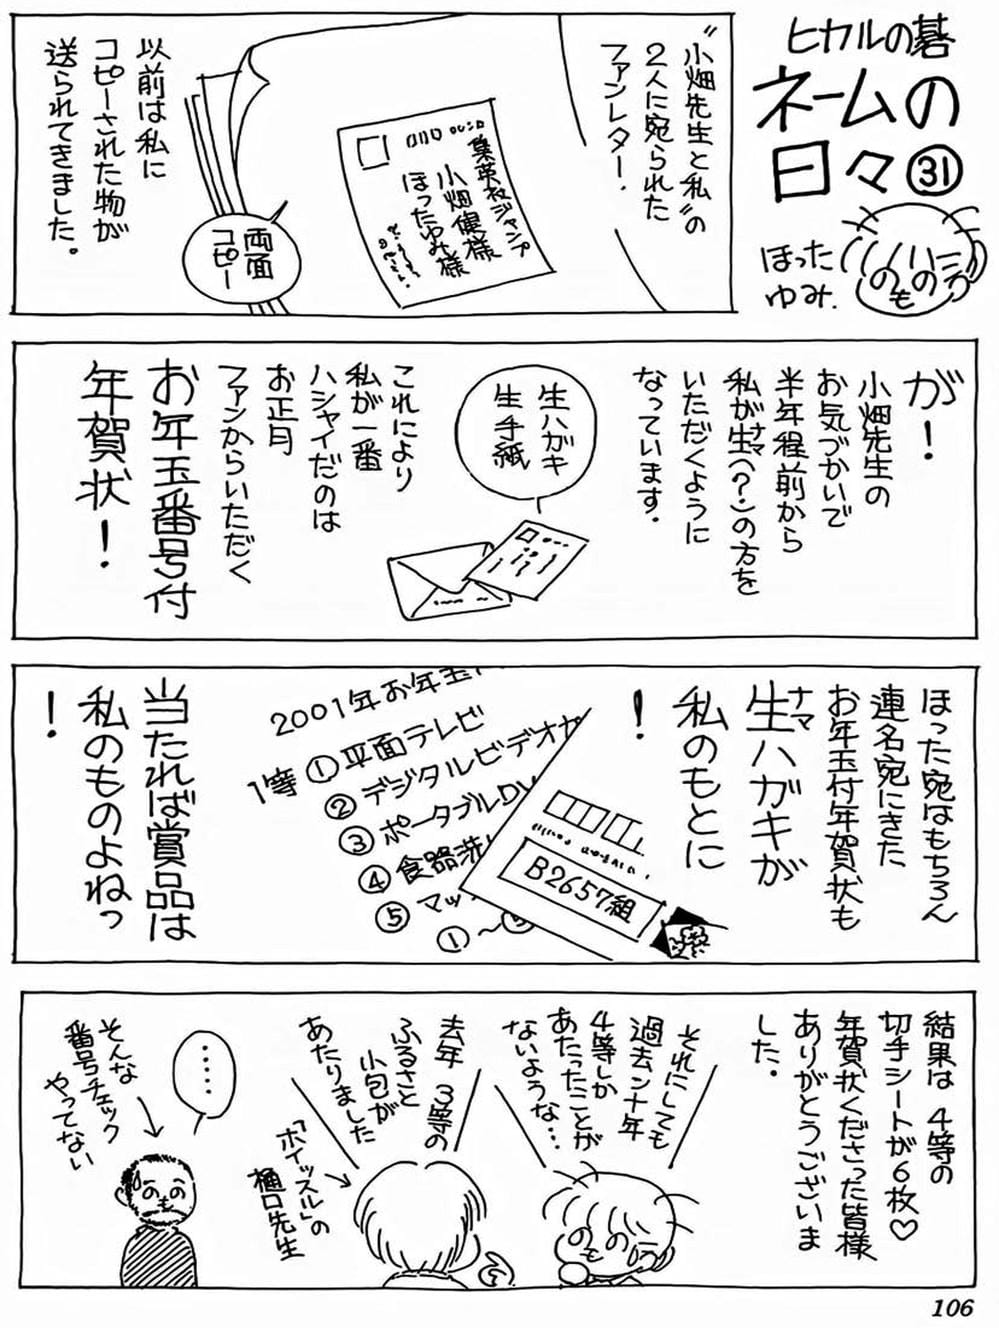 ヒカルの碁
ネームの
日々㉛
ほった
ゆみ.
"小畑先生と私"の
2人に宛られた
ファンレター.
集英社ジャンプ
小畑健様
ほったゆみ様
両面
コピー
以前は私に
コピーされた物が
送られてきました。
が!
小畑先生の
お気づかいで
半年程前から
私が生(?)の方を
ナマ
いただくように
なっています.
生ハガキ
生手紙
これにより
私が一番
ハシャイだのは
お正月
ファンからいただく
お年玉番号付
年賀状!
ほった宛はもちろん
連名宛にきた
お年玉付年賀状も
生ハガキが
ナマ
私のもとに
!
2001年お年玉
1等 ①平面テレビ
②デジタルビデオカ
③ポータブルDV
④食器洗い
⑤マッ
①〜⑤
B2657組
当たれば賞品は
私のものよねっ
!
結果は 4等の
切手シートが6枚♡
年賀状くださった皆様
ありがとうございま
した.
それにしても
過去ン十年
4等しか
あたったことが
ないような…
去年 3等の
ふるさと
小包が
あたりました
「ホイッスル」の
樋口先生
……
そんな
番号チェック
やってない
106